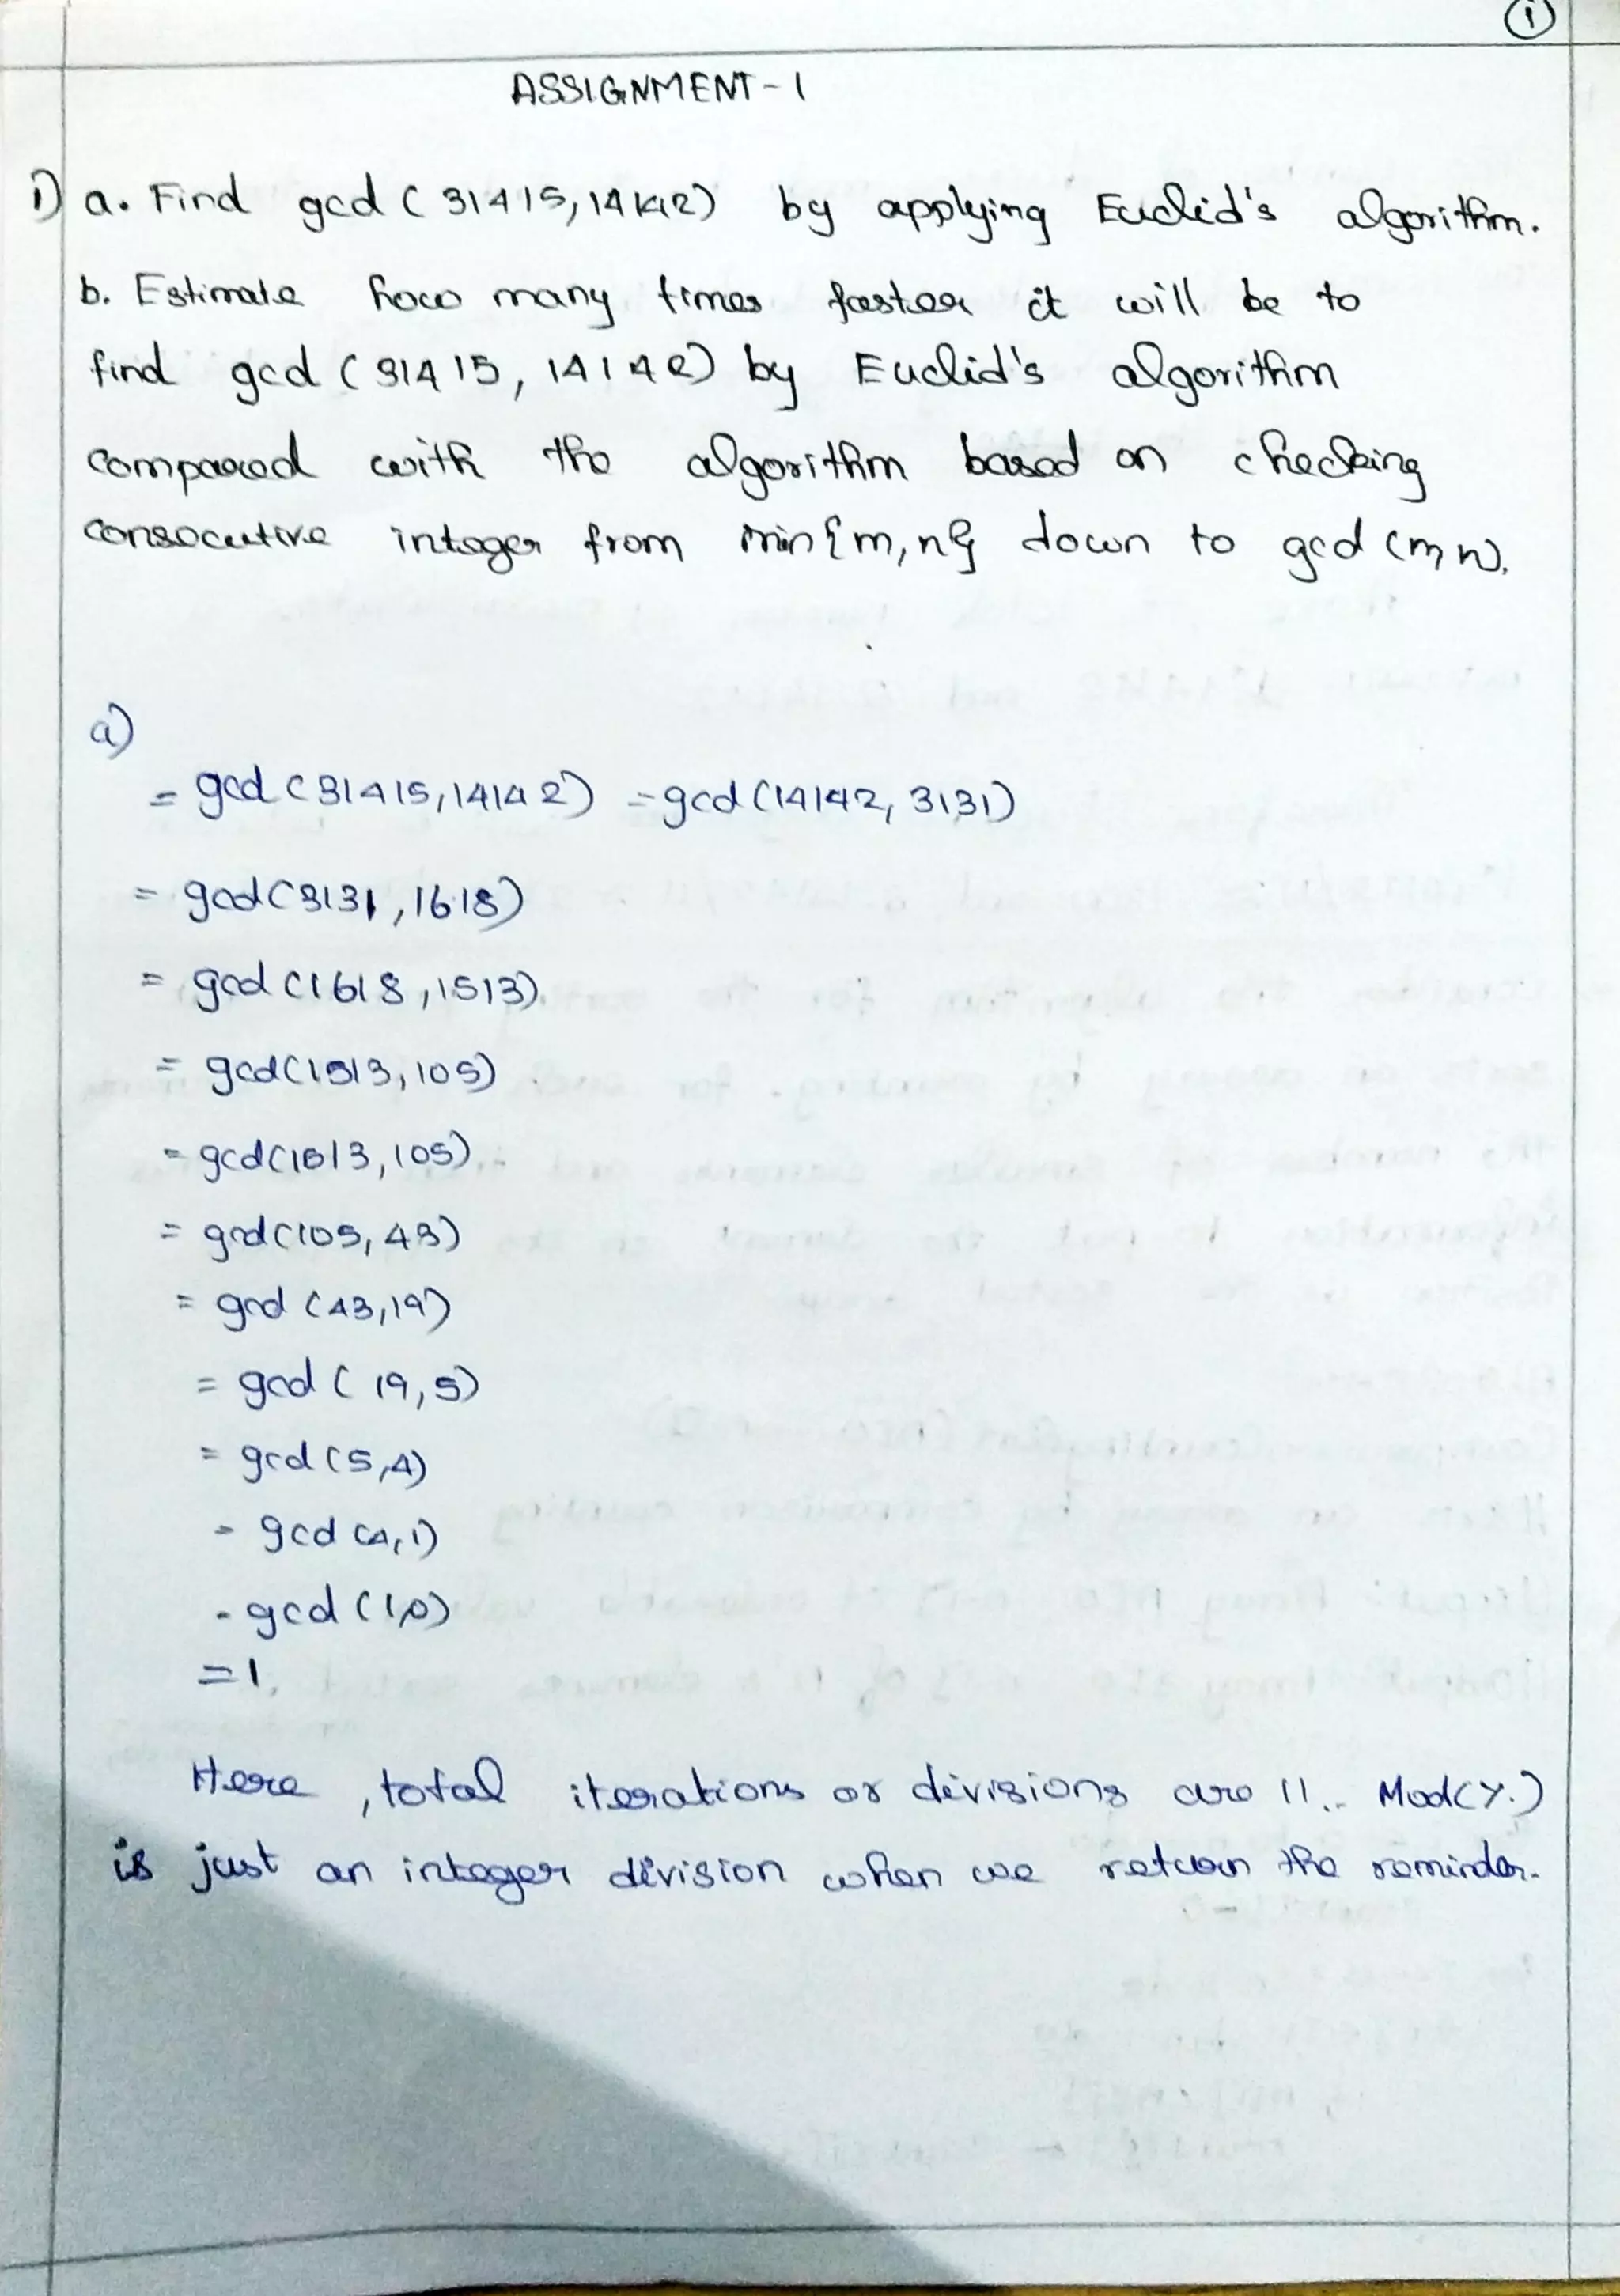 1
ASSIGNMENT-1
1) a. Find gcd (31415, 14142) by applying Euclid's algorithm.
b. Estimate how many times faster it will be to
find gcd (31415, 14142) by Euclid's algorithm
compared with the algorithm based on checking
consecutive integer from min{m,n} down to gcd (m, n).
a)
= gcd (31415,14142) = gcd(14142, 3131)
= gcd(3131,1618)
= gcd (1618,1513)
= gcd(1513,105)
= gcd(1513,105)
= gcd(105, 43)
= gcd (43,19)
= gcd (19,5)
= gcd (5,4)
= gcd (4,1)
- gcd (1,0)
= 1.
Here, total iterations or divisions are 11.. Mod(%.)
is just an integer division when we return the reminder.